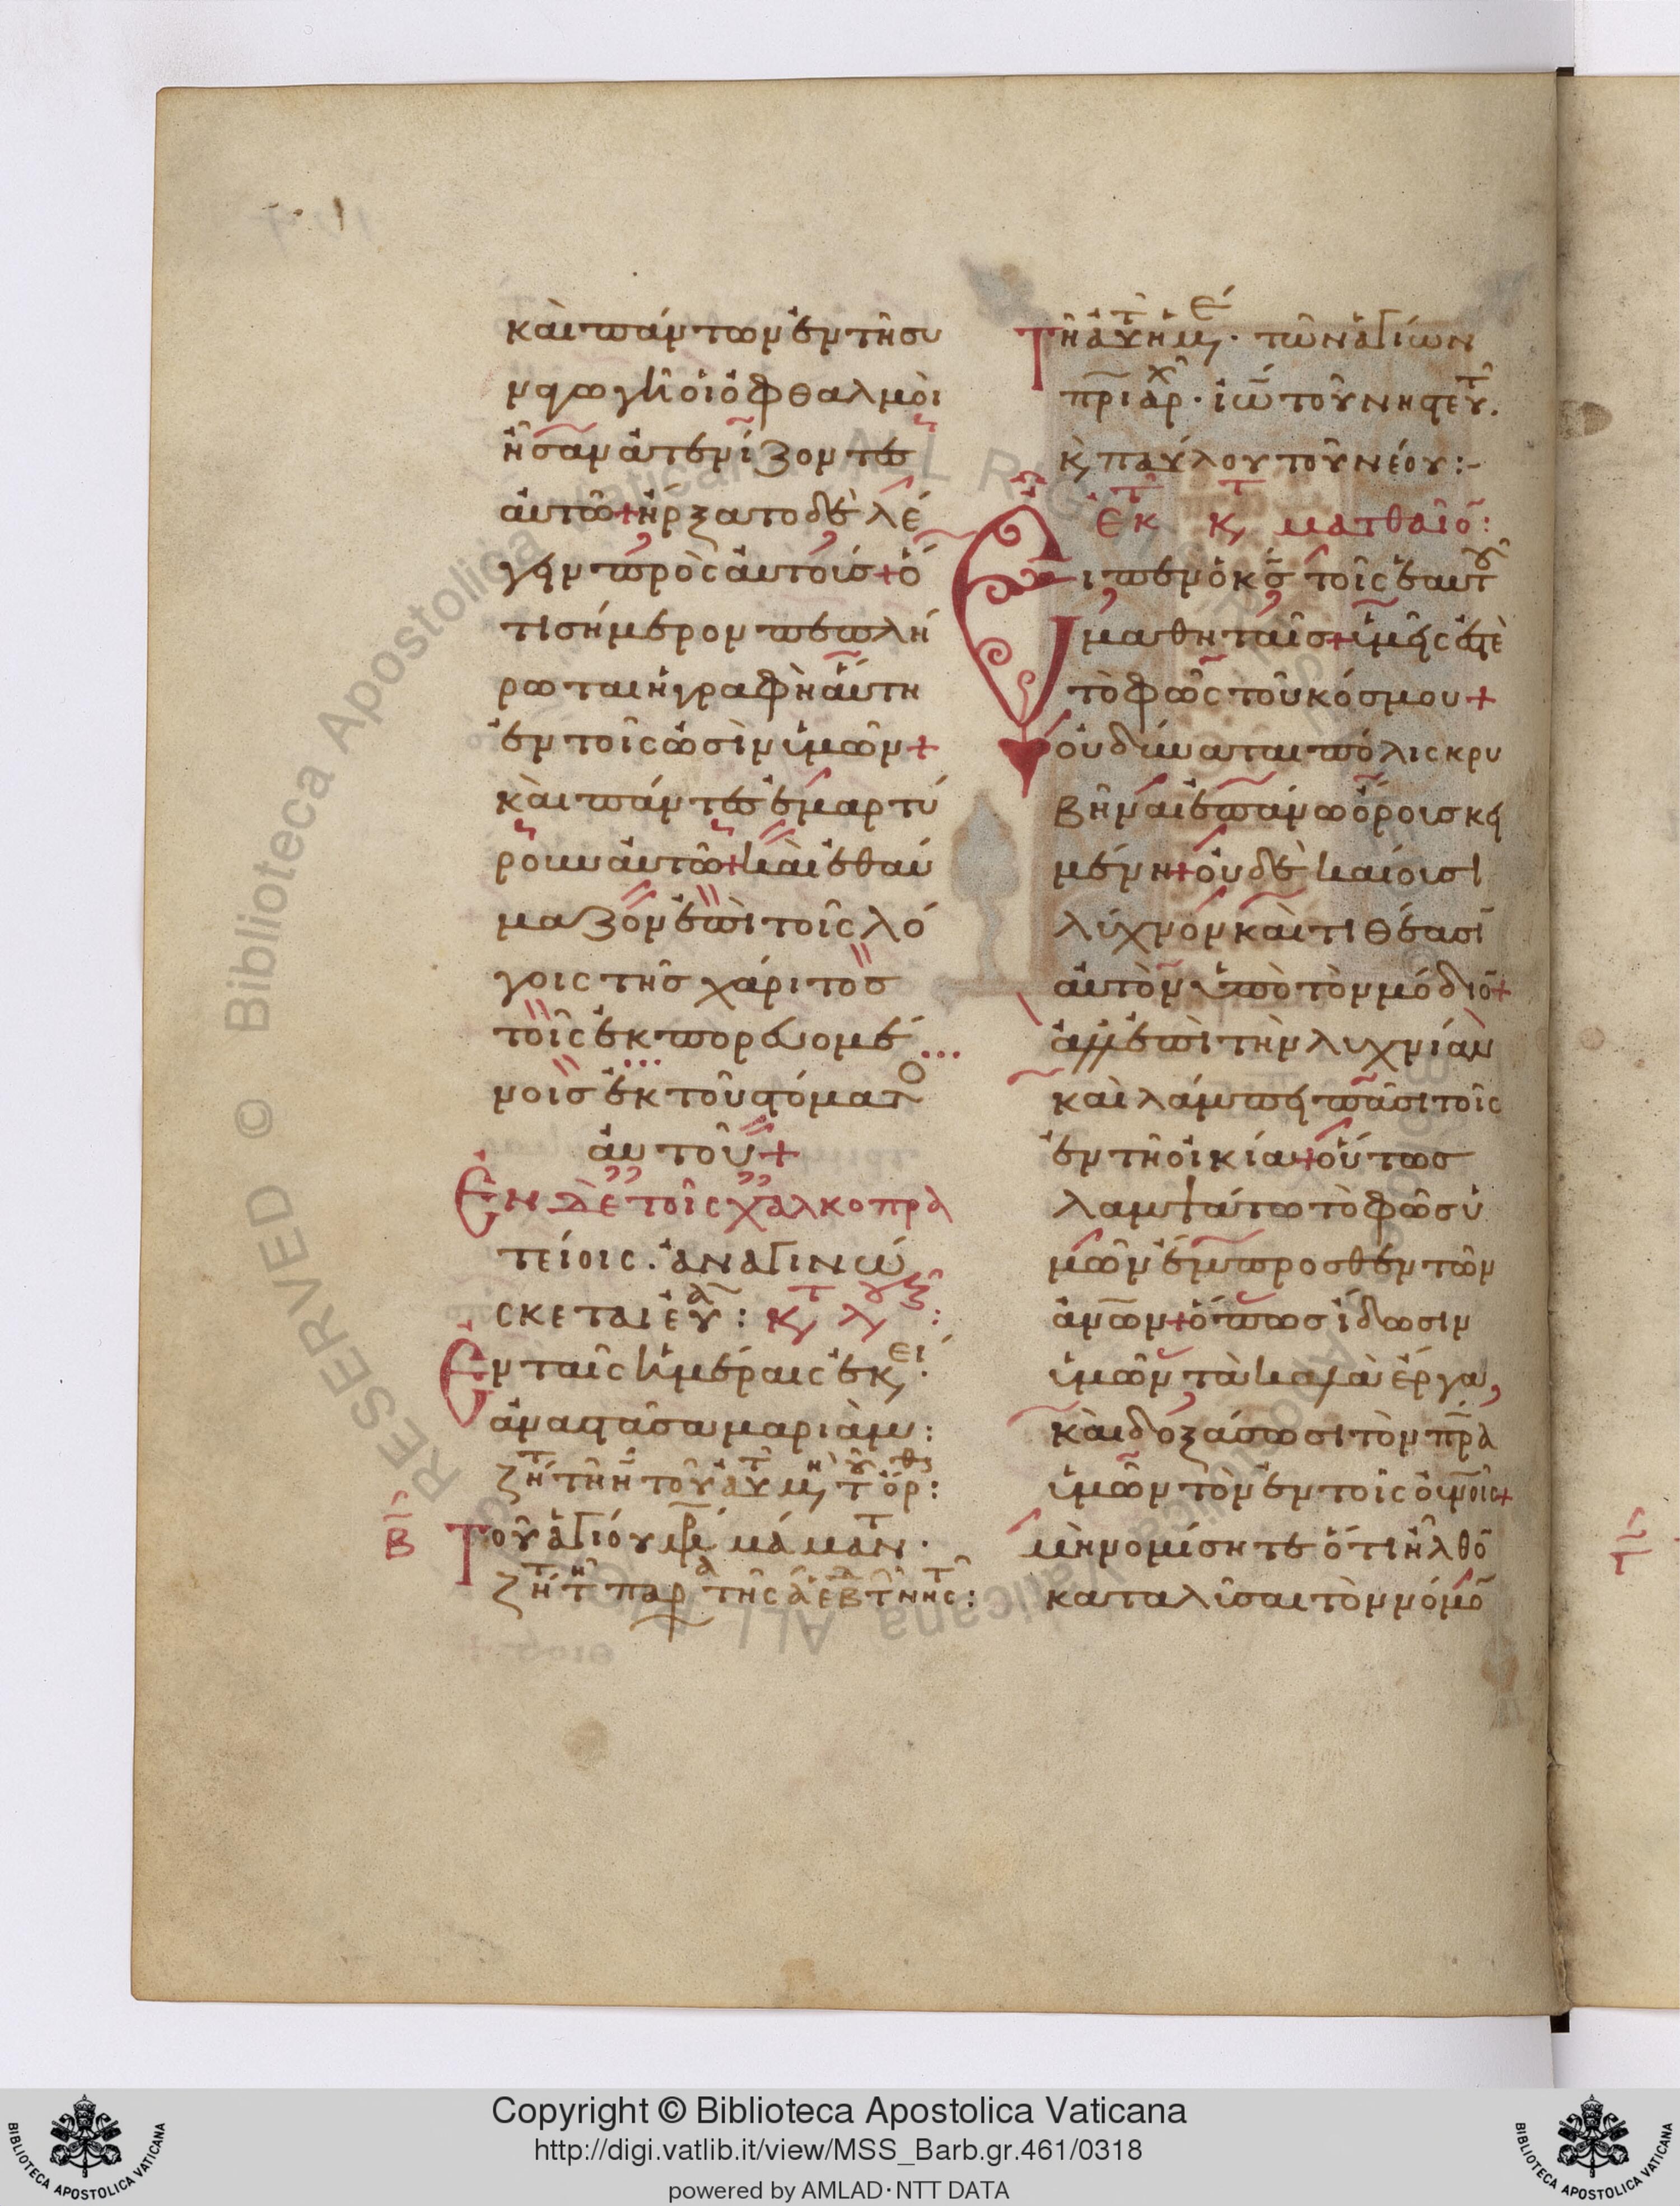 καὶ πάντων ἐν τῆ συ
ναγωγῆ οἱ ὀφθαλμοὶ
ἦσαν ἀτενίζοντες
αὐτῶ + ἤρξατο δὲ λέ
γειν πρὸς αὐτοὺς + ὅ
τι σήμερον πεπλή
ρωται ἡ γραφὴ αὕτη
ἐν τοῖς ὠσὶν ὑμῶν +
καὶ πάντες ἐμαρτύ
ρουν αὐτῶ + καὶ ἐθαύ
μαζον ἐπὶ τοῖς λό
γοις τῆς χάριτος
τοῖς ἐκπορευομέ
νοις ἐκ τοῦ στόματο
αὐτοῦ +
Ἐν δὲ τοῖς χαλκοπρα
τείοις. ἀναγινώ
σκεται
Ἐν ταῖς ἡμέραις ἐκει
ἀναστᾶσα μαριὰμ :
Β Τοῦ ἁγίου μάμαντ.
Τῆ αὐτῆ ἡμ. τῶν ἁγίων
πρι αρχ. ἰω τοῦ νηστευτ.
κ, παύλου τοῦ νέου :-
Ἐκ τ κ τ ματθαῖο :
Εἶπεν ὁ κς τοῖς ἑαυτοῦ
μαθηταῖς + ὑμεῖς ἐστὲ
τὸ φῶς τοῦ κόσμου +
οὐ δύναται πόλις κρυ
βῆναι ἐπάνω ὄρους κει
μένη + οὐδὲ καίουσι
λύχνον καὶ τιθέασι
αὐτὸν ὑπὸ τὸν μόδιο +
ἀλλ' ἐπὶ τὴν λυχνίαν
καὶ λάμπει πᾶσι τοῖς
ἐν τῆ οἰκία + οὕτως
λαμψάτω τὸ φῶς ὑ
μῶν ἔμπροσθεν τῶν
ἀνων + ὅπως ἴδωσιν
ὑμῶν τὰ καλὰ ἔργα,
καὶ δοξάσωσι τὸν πρα
ὑμῶν τὸν ἐν τοῖς οὐνοις +
μὴ νομίσητε ὅτι ἦλθο
καταλῦσαι τὸν νόμο
Copyright © Biblioteca Apostolica Vaticana
http://digi.vatlib.it/view/MSS_Barb.gr.461/0318
powered by AMLAD·NTT DATA
BIBLIOTECA APOSTOLICA VATICANA
BIBLIOTECA APOSTOLICA VATICANA